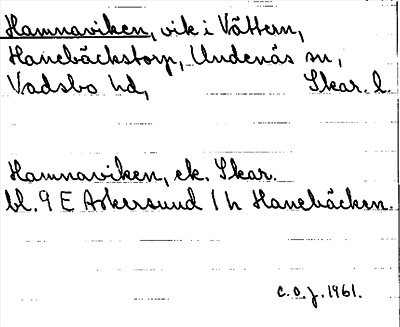 Hamnaviken, vik i Vättern,
Hanebäckstorp, Undenäs sn,
Vadsbo hd, Skar. l.
Hamnaviken, ek. Skar.
bl. 9 E Askersund 1 h Hanebäcken.
c.o.j. 1961.